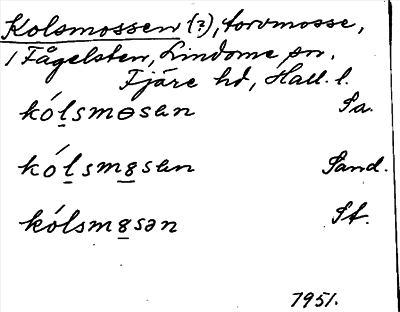 Kolsmossen (?), torvmosse,
i Fågelsten, Lindome sn,
Fjäre hd, Hall. l.
kólsmɵsen Sa.
kólsm8sen Sand.
kólsm8sən St.
1951.